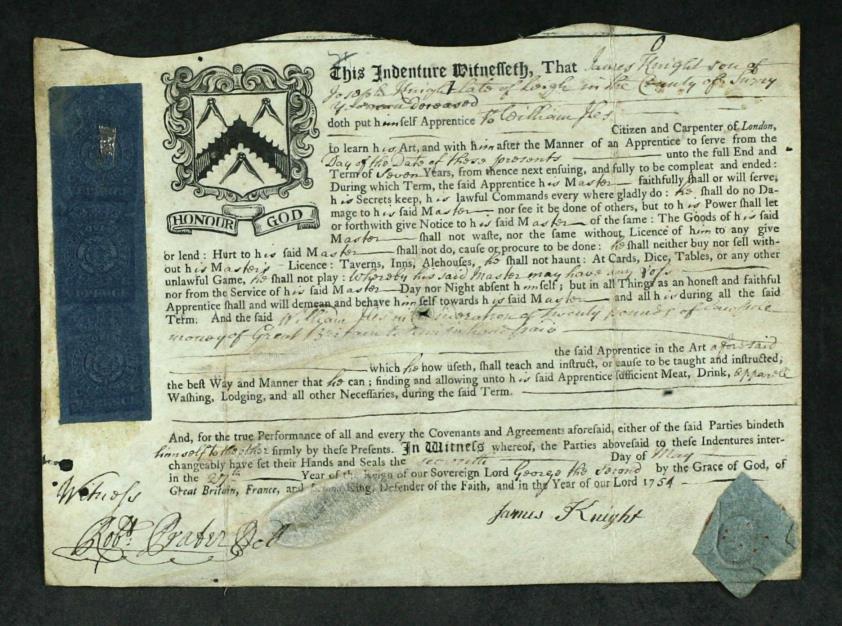 This Indenture Witnesseth, That James Knight son of
Joseph Knight late of Leigh in the County of Surry
Yeoman deceased
doth put himself Apprentice to William Iles
Citizen and Carpenter of London,
to learn his Art, and with him after the Manner of an Apprentice to serve from the
Day of the Date of these presents unto the full End and
Term of Seven Years, from thence next ensuing, and fully to be compleat and ended:
During which Term, the said Apprentice his Master faithfully shall or will serve,
his Secrets keep, his lawful Commands every where gladly do: he shall do no Da-
mage to his said Master nor see it be done of others, but to his Power shall let
or forthwith give Notice to his said Master of the same: The Goods of his said
Master shall not waste, nor the same without Licence of him to any give
HONOUR GOD
or lend: Hurt to his said Master shall not do, cause or procure to be done: he shall neither buy nor sell with-
out his Master's Licence: Taverns, Inns, Alehouses, he shall not haunt: At Cards, Dice, Tables, or any other
unlawful Game, he shall not play: whereby his said Master may have any loss
nor from the Service of his said Master Day nor Night absent himself; but in all Things as an honest and faithful
Apprentice shall and will demean and behave himself towards his said Master and all his during all the said
Term. And the said William Iles in Consideration of Twenty pounds of Lawfull
money of Great Britain to him in hand paid
the said Apprentice in the Art aforesaid
which he now useth, shall teach and instruct, or cause to be taught and instructed,
the best Way and Manner that he can; finding and allowing unto his said Apprentice sufficient Meat, Drink, Apparell
Washing, Lodging, and all other Necessaries, during the said Term.
And, for the true Performance of all and every the Covenants and Agreements aforesaid, either of the said Parties bindeth
himself to the other firmly by these Presents. In Witness whereof, the Parties abovesaid to these Indentures inter-
changeably have set their Hands and Seals the Seventh Day of May
in the 27th Year of the Reign of our Sovereign Lord George the Second by the Grace of God, of
Great Britain, France, and King, Defender of the Faith, and in the Year of our Lord 1754
James Knight
Witness
Robt. Prater